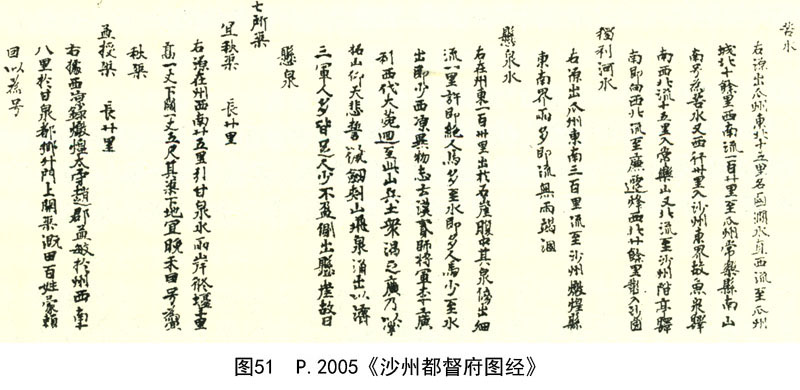 苦水
右源出瓜州東北十五里名鹵澗水直西流至瓜州
城北十餘里西南流一百廿里至瓜州常樂縣南山
南号為苦水又西行卅里入沙州東界故魚泉驛
南西北流十五里入常樂山又北流至沙州階亭驛
南即向西北流至廣顯烽西北廿餘里散入沙鹵
獨利河水
右源出瓜州東南三百里流至沙州燉煌縣
東南界雨多即流無雨竭涸
懸泉水
右在州東一百卅里出於石崖腹中其泉傍出細
流一里許即絕人馬多至水即多人馬少至水
出即少西涼異物志云漢貳師將軍李廣
利西伐大菀迴至此山兵士眾渴乏廣乃以掌
拓山仰天悲誓以佩劍刺山飛泉涌出以濟
三軍人多皆足人少不盈側出懸崖故曰
懸泉
七所渠
宜秋渠 長廿里
右源在州西南廿五里引甘泉水兩岸修堰十里
高一丈下闊一丈五尺其渠下地宜晚禾因号為宜
秋渠
孟授渠 長廿里
右據西涼錄燉煌太守趙郡孟敏於州西南十
八里於甘泉都鄉斗門上開渠溉田百姓蒙賴
因以為号
图51 P.2005《沙州都督府图经》